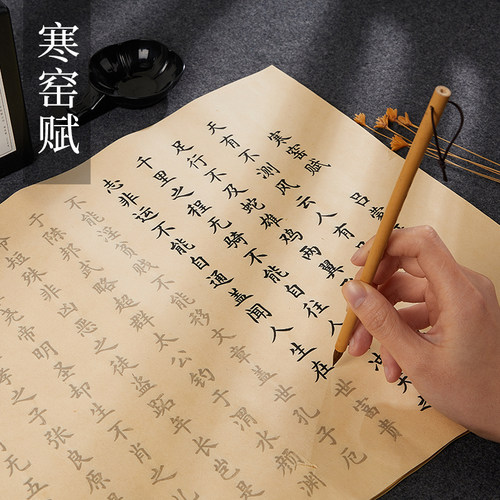 寒窑赋
寒窑赋
吕蒙
天有不测风云人有
足行不及蛇雄鸡两翼
千里之程无骑不能自往人
志非运不能自通盖闻人生在世富贵
不能淫贫贱不能移文章盖世孔子厄
于陈邦武略超群太公钓于渭水颜渊
短殊非凶恶之徒盗跖年长岂是
尧帝明圣却生不肖
孝之子张良原
无五